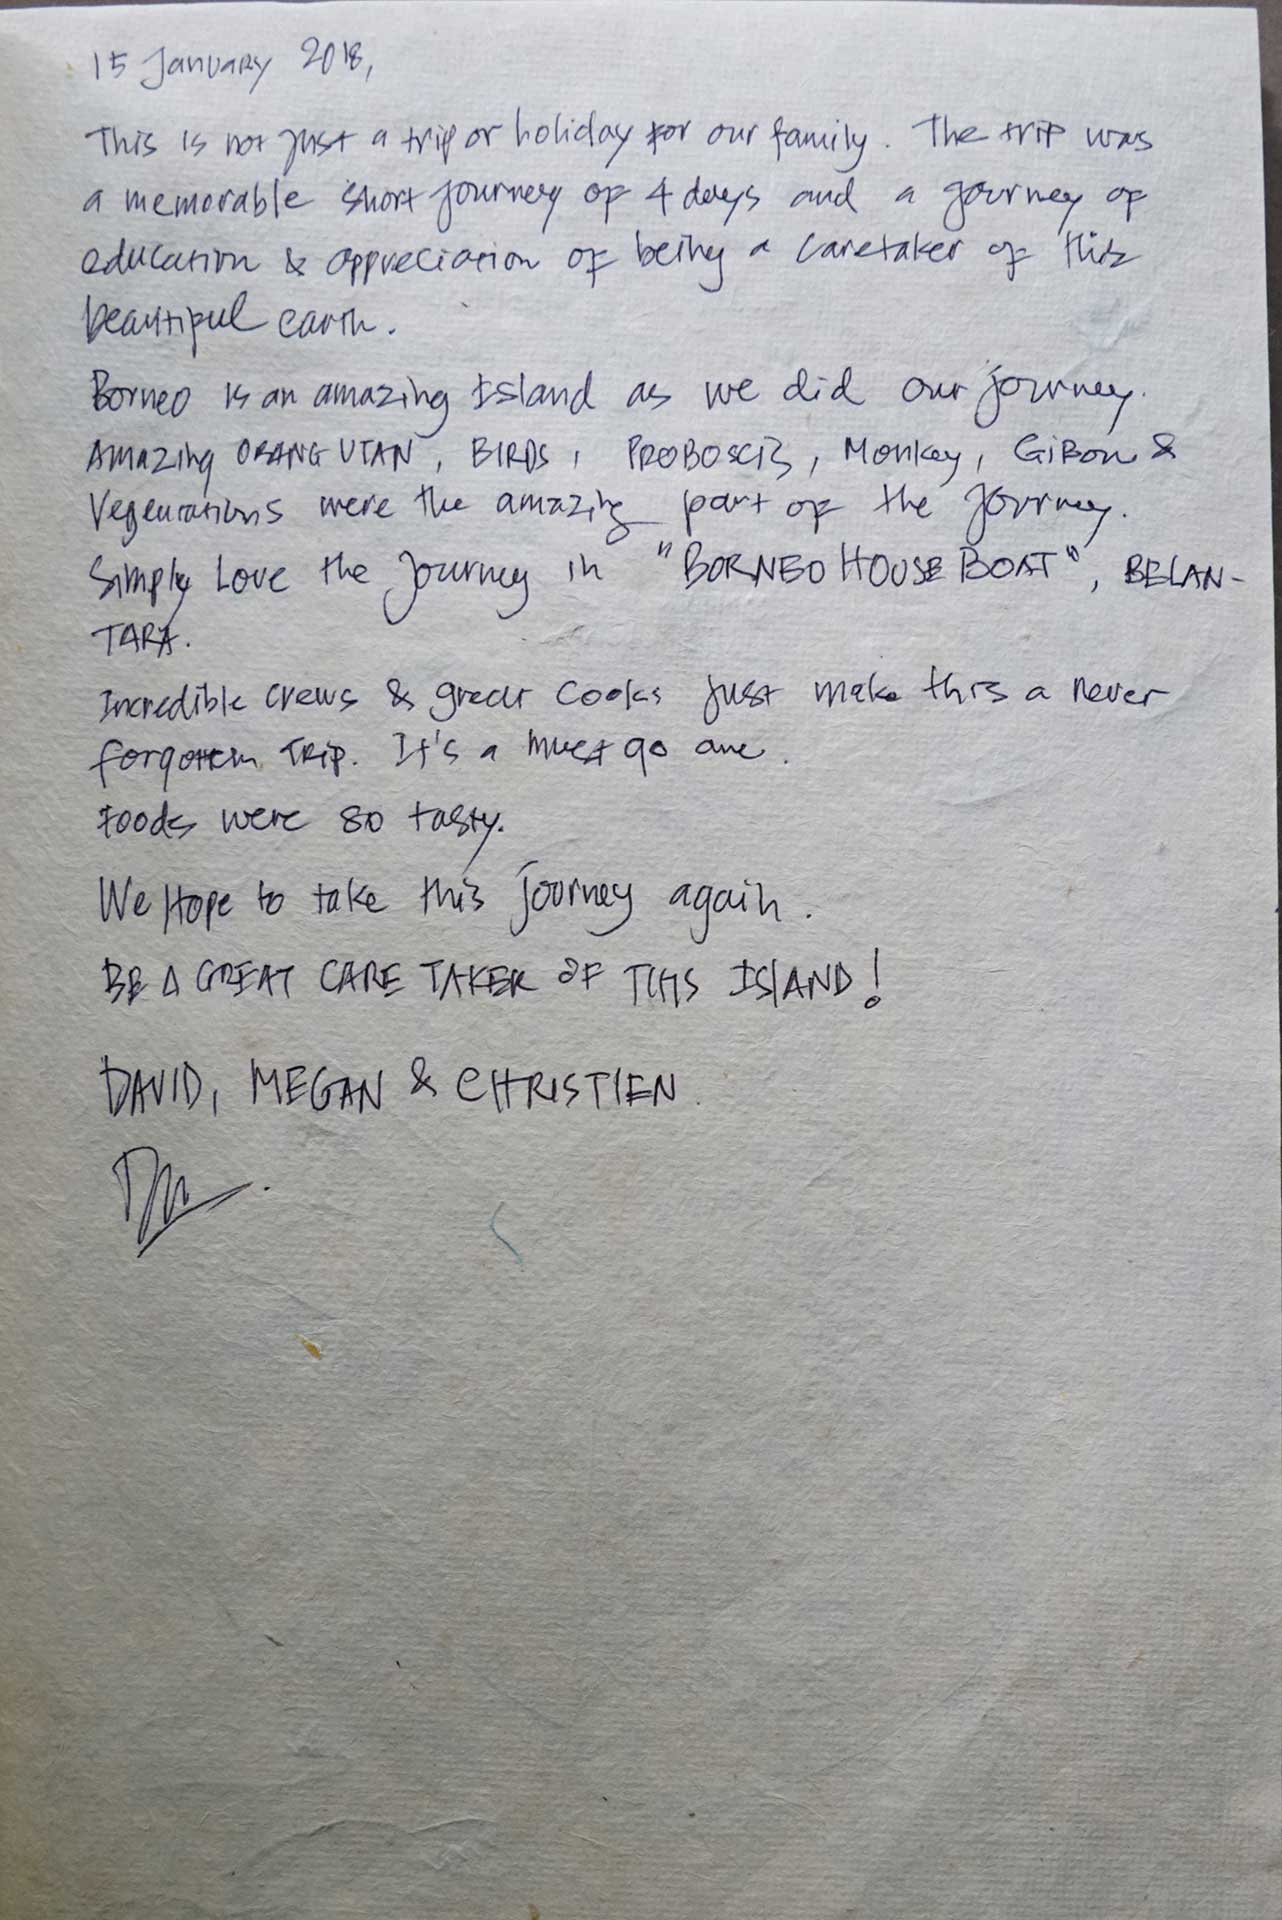 15 January 2018,
This is not just a trip or holiday for our family. The trip was
a memorable short journey of 4 days and a journey of
education & appreciation of being a caretaker of this
beautiful earth.
Borneo is an amazing Island as we did our journey.
Amazing ORANG UTAN, BIRDS, PROBOSCIS, Monkey, GiBon &
Vegetations were the amazing part of the journey.
Simply Love the journey in "BORNEO HOUSE BOAT", BELAN-
TARA.
Incredible crews & great cooks just make this a never
forgotten TRIP. It's a must go one.
Foods were so tasty.
We Hope to take this journey again.
BE A GREAT CARE TAKER OF THIS ISLAND!
DAVID, MEGAN & CHRISTIEN.